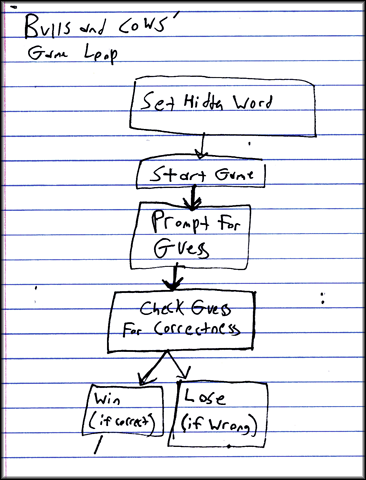 Bulls and Cows
Game Loop
Set Hidden Word
Start Game
Prompt For
Guess
Check Guess
For Correctness
Win
(if correct)
Lose
(if Wrong)